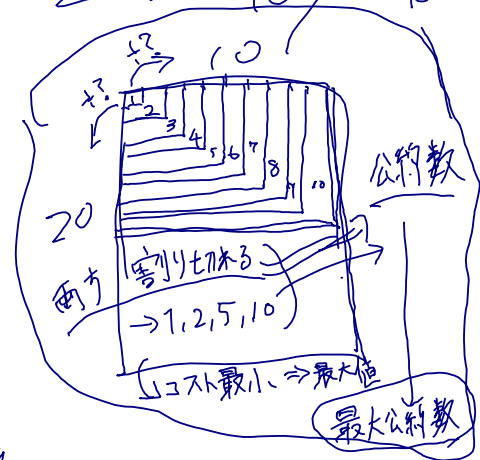 +?
10
+?
1
2
3
4
5
6
7
8
9
10
20
公約数
両方
割り切れる
→1,2,5,10
コスト最小、⇒最大値
最大公約数